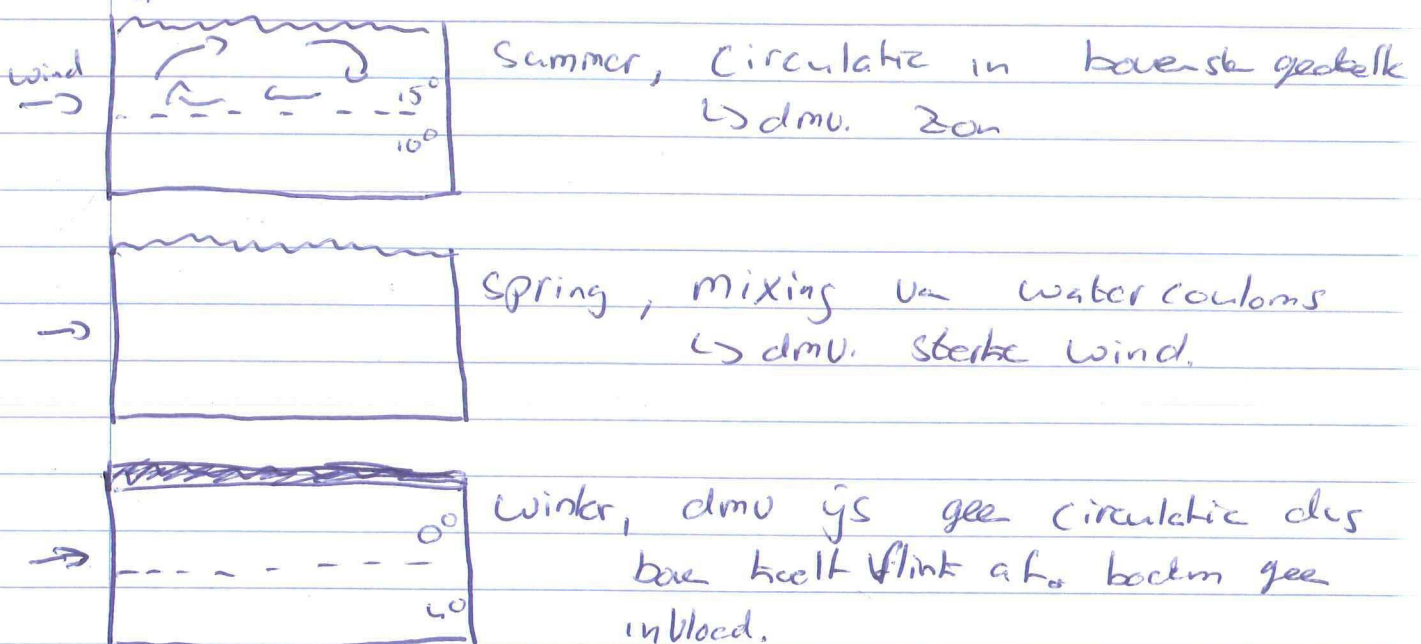 wind
→
15°
10°
Summer, Circulatie in bovenste gedeelte
↳ dmv. Zon
→
Spring, mixing van watercouloms
↳ dmv. sterke wind.
→
0°
4°
Winter, dmv ijs geen circulatie dus
boven koelt flink af. bodem geen
invloed.